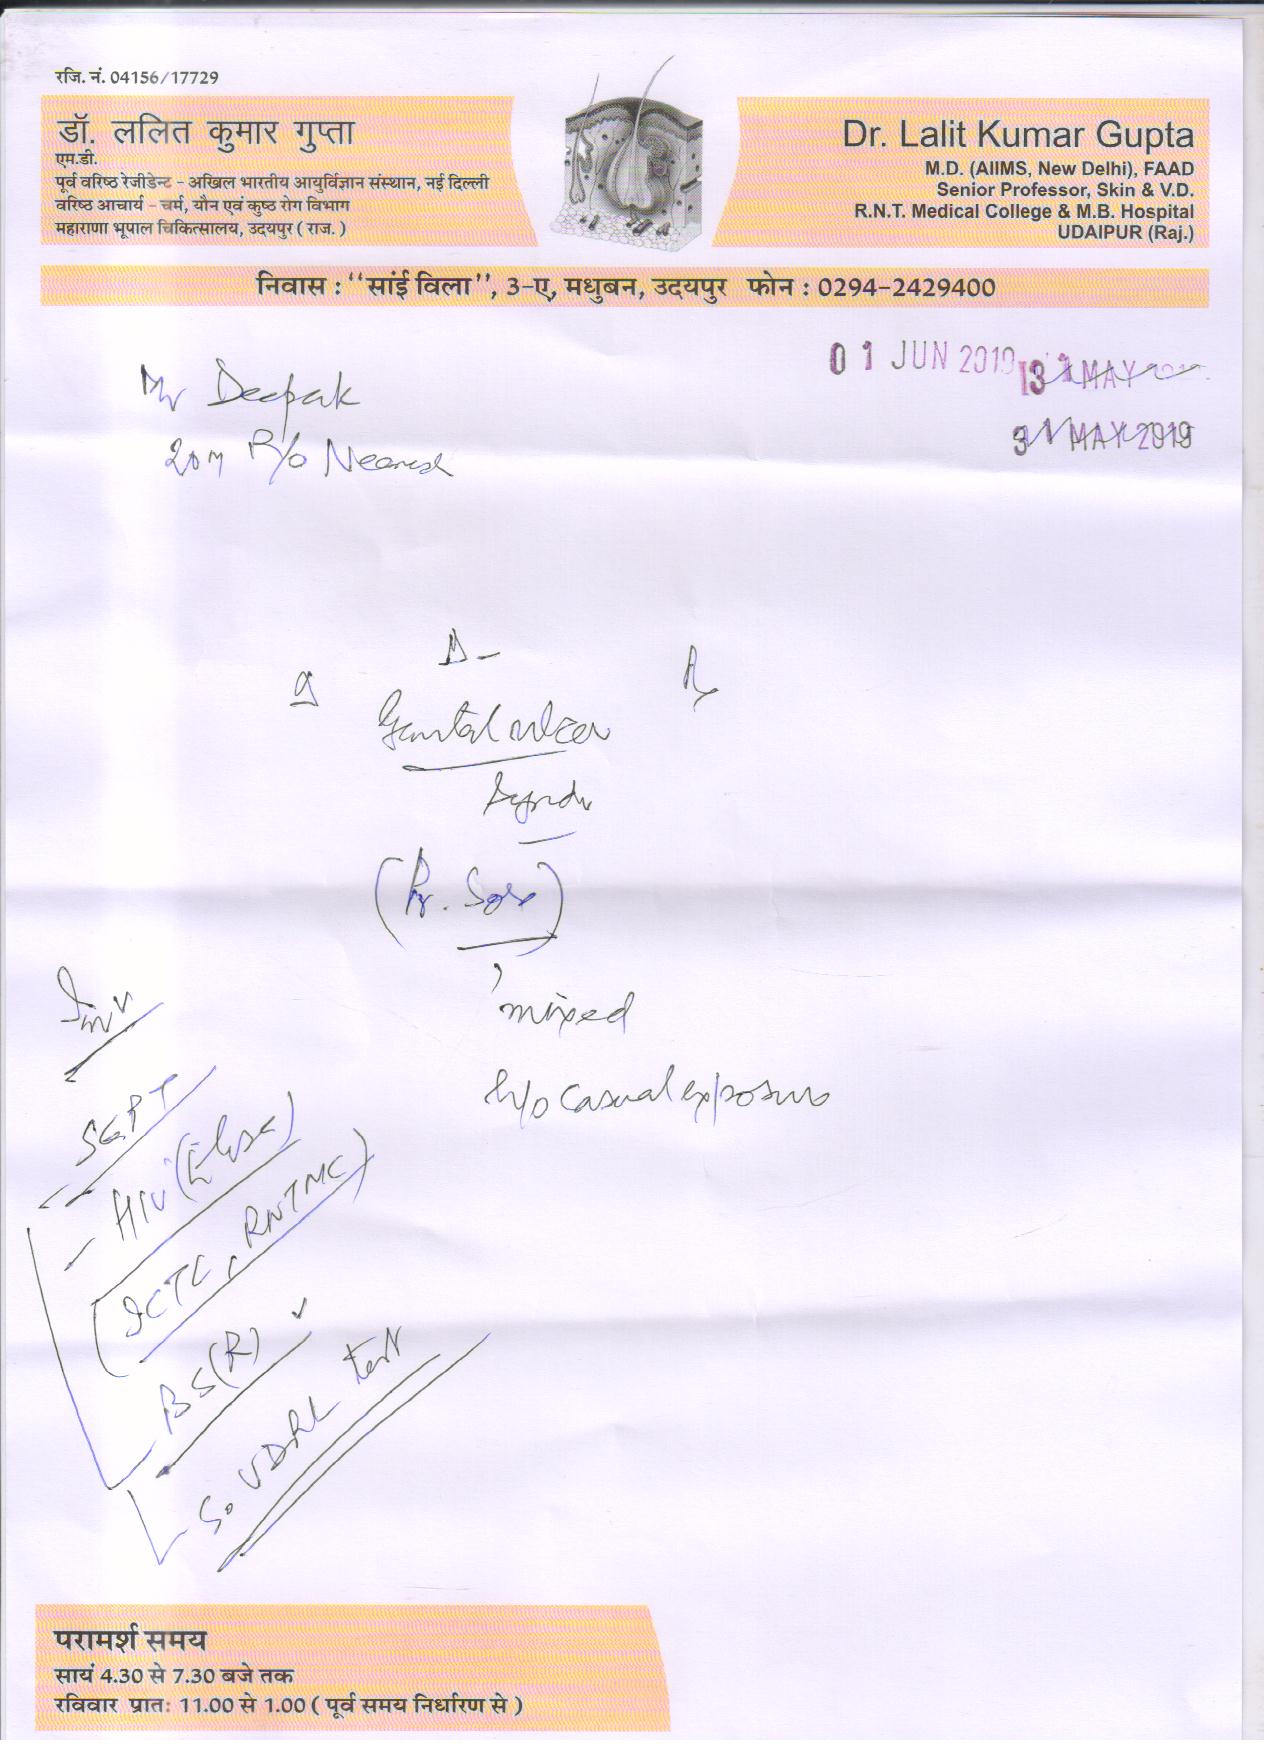 रजि. नं. 04156/17729
डॉ. ललित कुमार गुप्ता
एम.डी.
पूर्व वरिष्ठ रेजीडेन्ट - अखिल भारतीय आयुर्विज्ञान संस्थान, नई दिल्ली
वरिष्ठ आचार्य - चर्म, यौन एवं कुष्ठ रोग विभाग
महाराणा भूपाल चिकित्सालय, उदयपुर ( राज. )
Dr. Lalit Kumar Gupta
M.D. (AIIMS, New Delhi), FAAD
Senior Professor, Skin & V.D.
R.N.T. Medical College & M.B. Hospital
UDAIPUR (Raj.)
निवास : "सांई विला", 3-ए, मधुबन, उदयपुर फोन : 0294-2429400
01 JUN 2019
31 MAY
31 MAY 2019
Mr Deepak
20 M R/o
Δ -
Rx
Genital ulcer
(Pr. Sore)
mixed
h/o casual exposure
Inv
SGPT
HIV (Elisa)
(ICTC, RNTMC)
BS(R) ✓
S. VDRL test
परामर्श समय
सायं 4.30 से 7.30 बजे तक
रविवार प्रातः 11.00 से 1.00 ( पूर्व समय निर्धारण से )